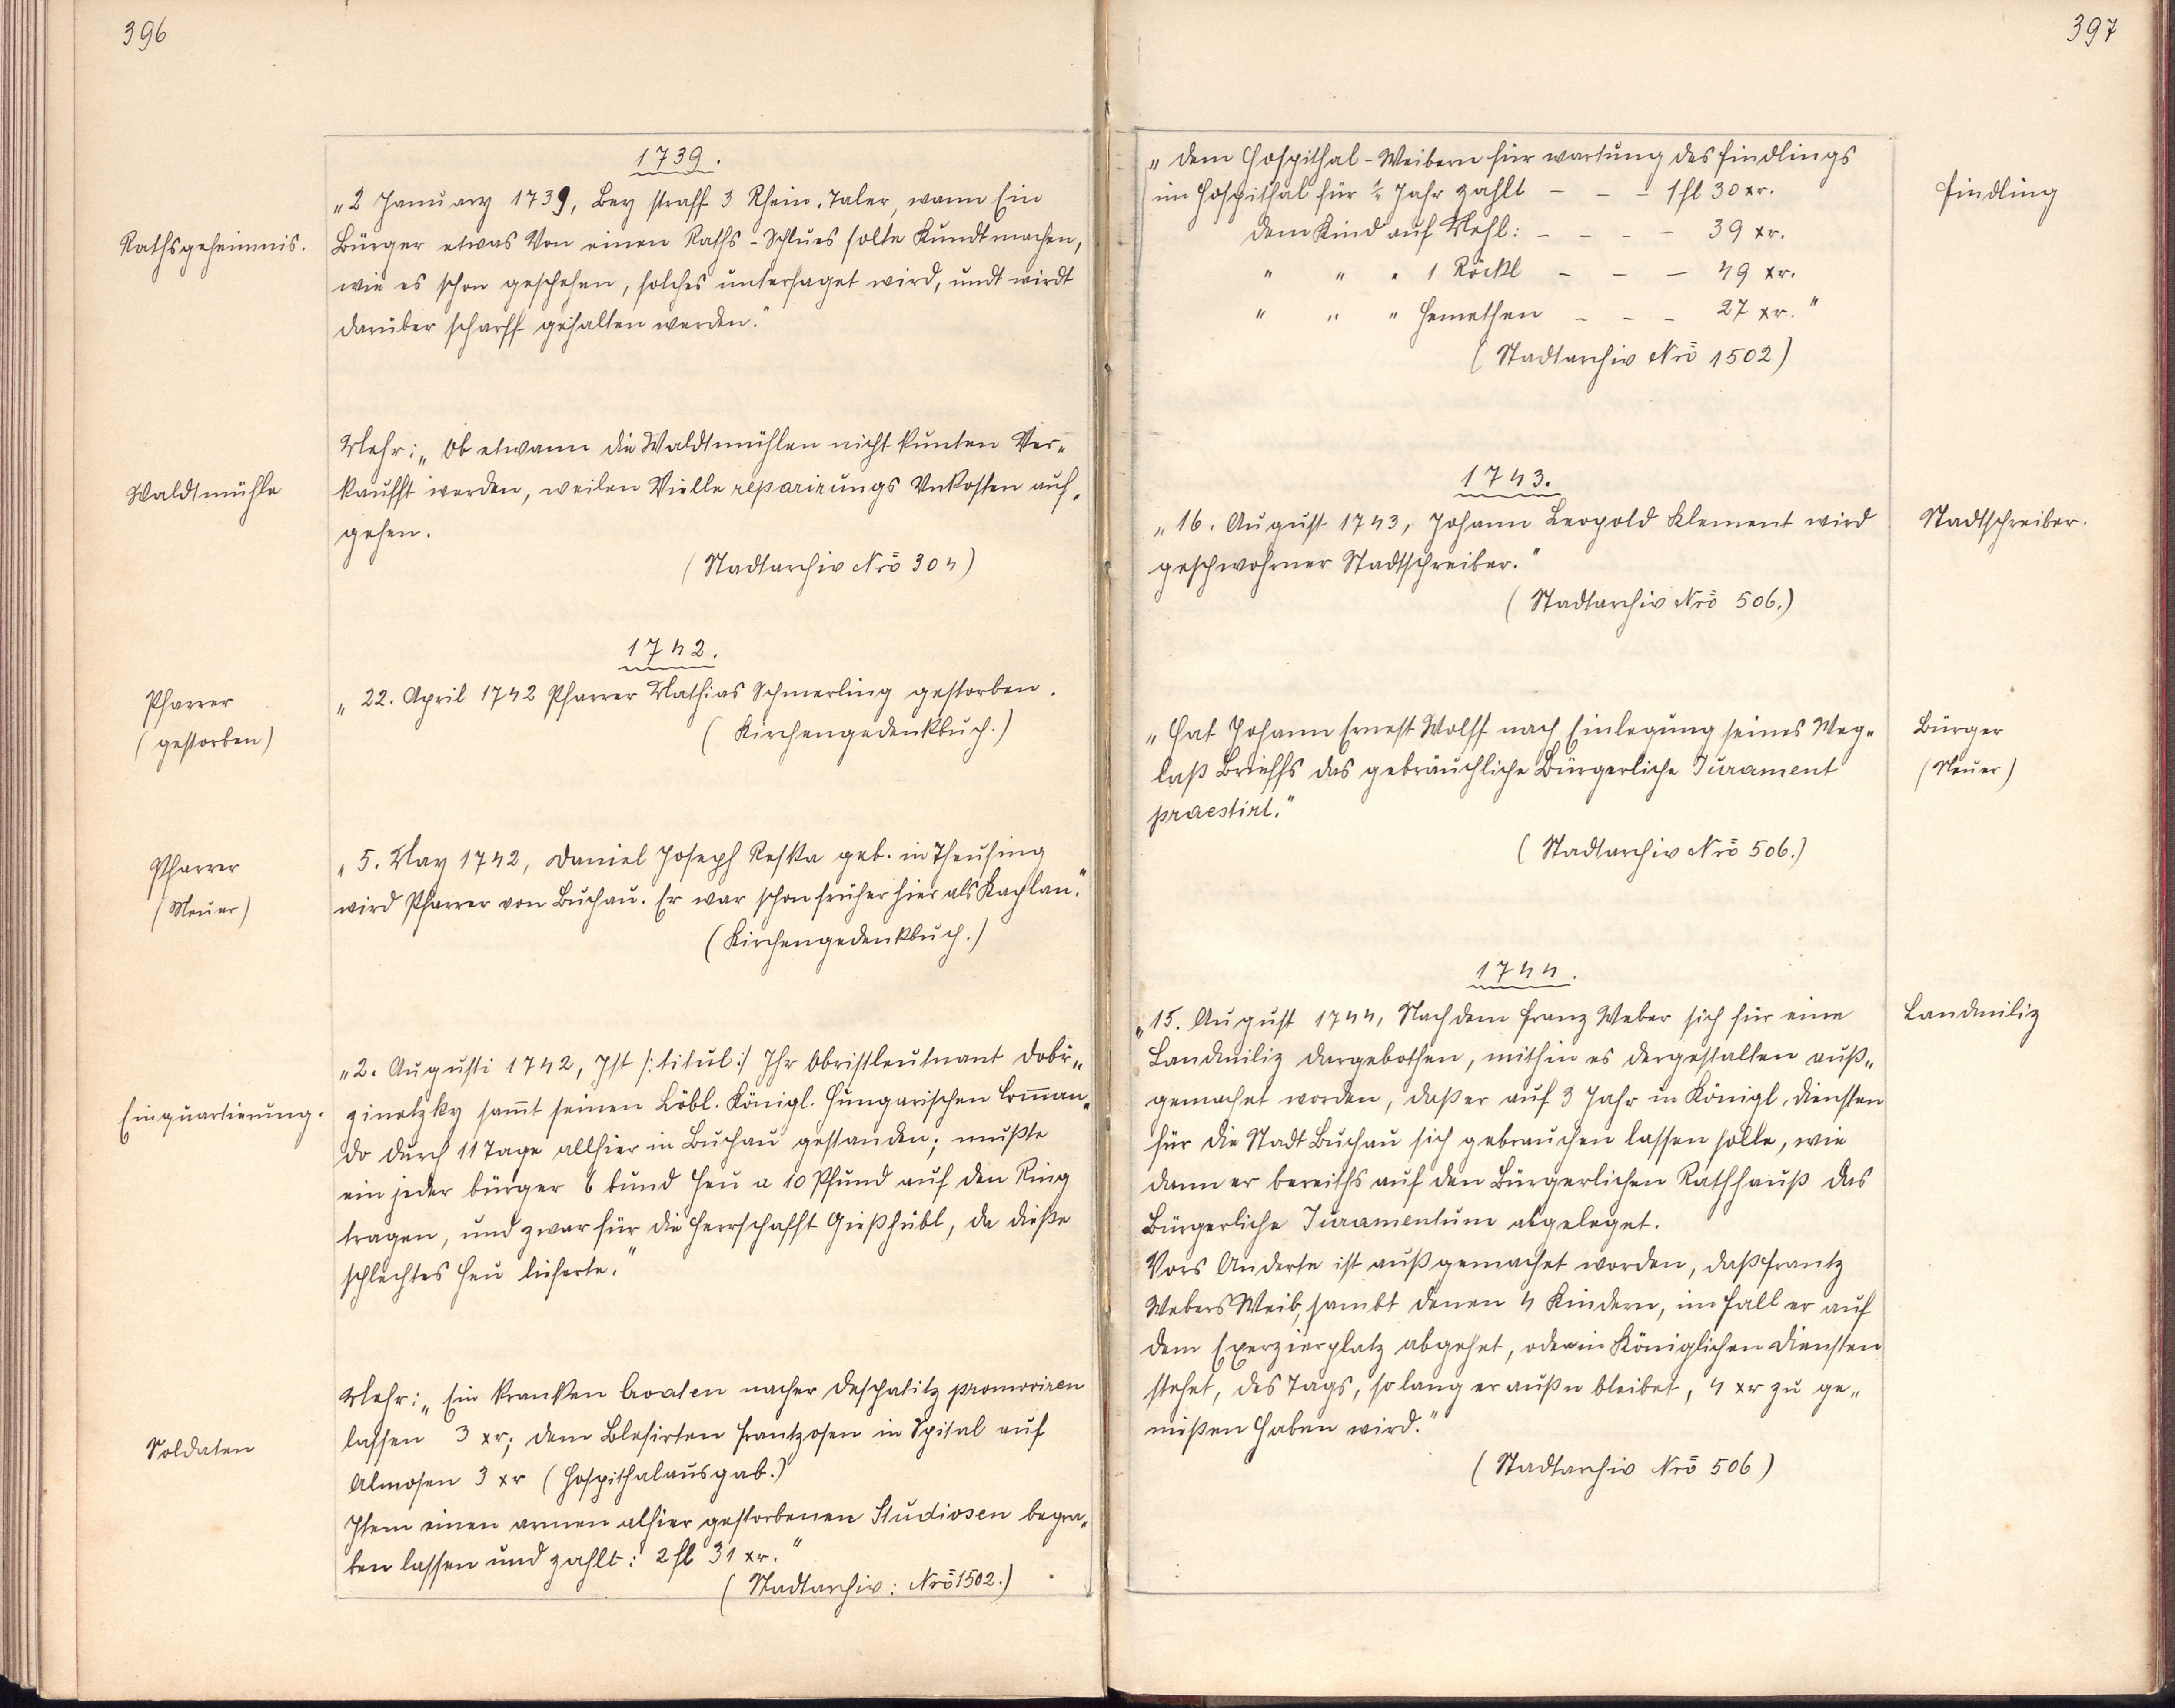 396
1739.
„2 January 1739, Bey straff 3 Rhein. Taler, wann Ein
Rathsgeheimnis.
Bürger etwas Von einen Raths-Schlues solte Kundt machen,
wie es schon geschehen, solches untersaget wird, undt wirdt
darüber scharff gehalten werden."
Mehr: „Ob etwann die Waldtmühlen nicht kunten Ver„
Waldtmühle
kaufft werden, weilen Vielle reparirungs Vnkosten auf„
gehen.
(Stadtarchiv Nrō 304)
1742.
Pfarrer
(gestorben)
„22. April 1742 Pfarrer Mathias Schmerling gestorben.
(Kirchengedenkbuch.)
Pfarrer
(Neuer)
„5. May 1742, Daniel Joseph Reska geb. in Theusing
wird Pfarrer von Buchau. Er war schon früher hier als Kaplan."
(Kirchengedenkbuch.)
„2. Augusti 1742, Ist /:titul:/ Ihr Obristleutnant Dobr„
Einquartierung.
zinetzky sam̄t seinen Löbl. Königl. Hungarischen Com̄an„
do durch 11 Tage allhier in Buchau gestanden; mußte
ein jeder bürger 6 bund Heu a 10 Pfund auf den Ring
tragen, und zwar für die Herrschafft Gießhübl, da dieße
schlechtes Heu lieferte."
Mehr: „Ein kranken Croaten nacher Deschatitz promoviren
Soldaten
lassen 3 xr; dem Blesirten Frantzosen in Spital auf
Almosen 3 xr (Hospithalausgab.)
Item einen armen alhier gestorbenen Studiosen begra„
ben lassen und zahlt: 2 fl 31 xr."
(Stadtarchiv: Nrō 1502.)
397
„dem Hospithal-Weibern für wartung des Findlings
im Hospithal für ½ Jahr zahlt - - - 1 fl 30 xr.
Findling
dem Kind auf Mehl: - - - - 39 xr.
" " " 1 Röckl - - - 49 xr.
" " " Hemethen - - - 27 xr."
(Stadtarchiv Nrō 1502)
1743.
„16. August 1743, Johann Leopold Klement wird
Stadtschreiber.
geschwohrner Stadtschreiber."
(Stadtarchiv Nrō 506.)
„Hat Johann Ernest Wolff nach Einlegung seines Weg„
Bürger
(Neuer)
laß Brieffs das gebräuchliche Bürgerliche Jurament
praestirt."
(Stadtarchiv Nrō 506.)
1744.
„15. August 1744, Nachdem Franz Weber sich für eine
Landmiliz
Landmiliz dargebothen, mithin es dergestalten auß„
gemachet worden, daß er auf 3 Jahr in Königl. Diensten
für die Stadt Buchau sich gebrauchen lassen solle, wie
dann er bereiths auf den Bürgerlichen Rathhauß das
Bürgerliche Juramentum abgeleget.
Vors Anderte ist außgemachet worden, daß Frantz
Webers Weib, sambt denen 4 Kindern, im Fall er auf
dem Exerzierplatz abgehet, oder in Königlichen Diensten
stehet, des Tags, so lang er außn bleibet, 4 xr zu ge„
nüßen haben wird."
(Stadtarchiv Nrō 506)